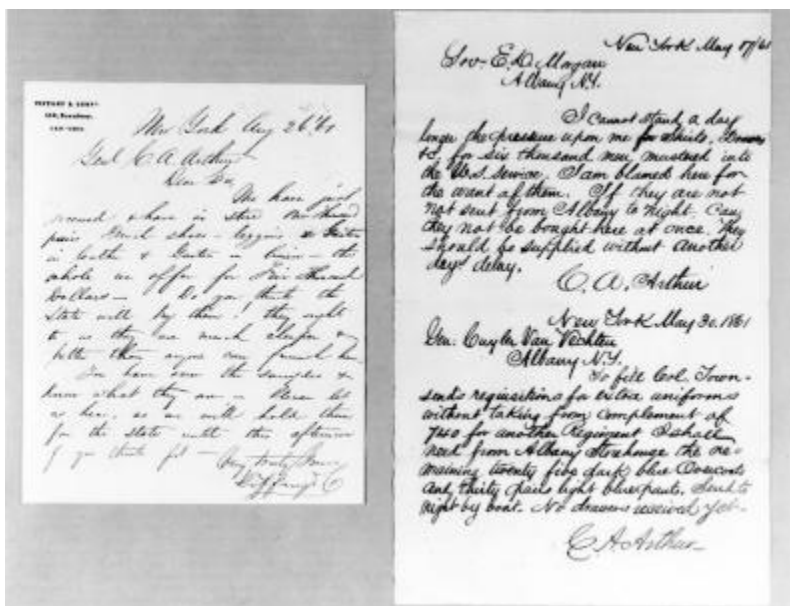 TIFFANY & CO
550, Broadway,
NEW-YORK
New York Aug 26 '61
Genl C. A. Arthur
Dear Sir
We have just
received & have in store
pairs French shoes – leggins & Gaiters
in leather & Gaiters in linen – the
whole we offer for Five thousand
Dollars – Do you think the
State will buy them? they ought
to as they are much cheaper &
better than anyone can furnish here
You have seen the samples &
know what they are – Please let
us hear, as we will hold them
for the State until this afternoon
if you think fit –
Very truly Yours
Tiffany & Co
New York May 17/61
Gov. E. D. Morgan
Albany N.Y.
I cannot stand a day
longer the pressure upon me for Shirts, Drawers
&c for six thousand men mustered into
the U.S. service. I am blamed here for
the want of them. If they are not
not sent from Albany to night, Can
they not be bought here at once. They
should be supplied without another
day's delay.
C. A. Arthur
New York May 30, 1861
Gen. Cuyler Van Vechten
Albany N.Y.
To fill Col. Town-
send's requisitions for extra uniforms
without taking from complement of
740 for another Regiment I shall
need from Albany Storehouse the re-
maining twenty five dark blue Overcoats
and thirty pairs light blue pants. Send to
night by boat. No drawers received yet –
C. A. Arthur –